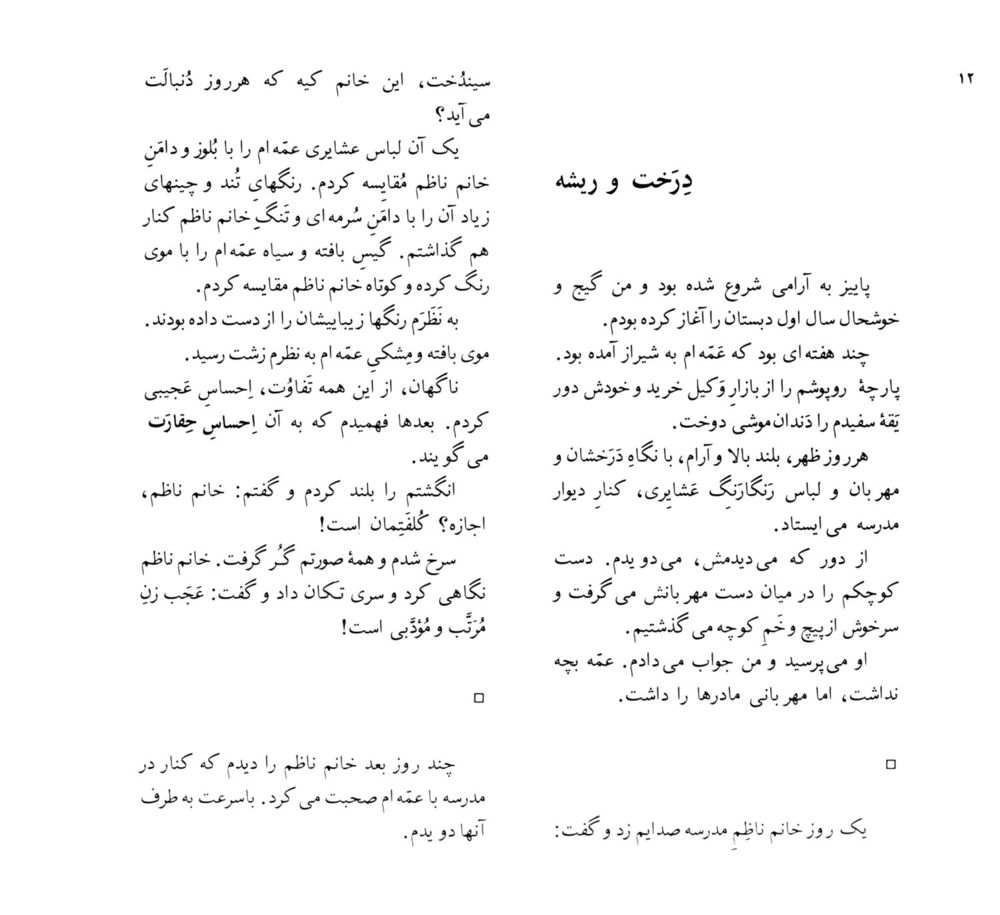 ۱۲
دِرَخت و ریشه
پاییز به آرامی شروع شده بود و من گیج و
خوشحال سال اول دبستان را آغاز کرده بودم.
چند هفته ای بود که عَمّه ام به شیراز آمده بود.
پارچۀ روپوشم را از بازارِ وَکیل خرید و خودش دور
یَقۀ سفیدم را دَندان موشی دوخت.
هرروز ظهر، بلند بالا و آرام، با نگاهِ دَرَخشان و
مهربان و لباس رَنگارَنگِ عَشایِری، کنارِ دیوار
مدرسه می ایستاد.
از دور که می دیدمش، می دویدم. دست
کوچکم را در میان دست مهربانش می گرفت و
سرخوش از پیچ و خَمِ کوچه می گذشتیم.
او می پرسید و من جواب می دادم. عمّه بچه
نداشت، اما مهربانی مادرها را داشت.
□
یک روز خانم ناظِمِ مدرسه صدایم زد و گفت:
سیندُخت، این خانم کیه که هرروز دُنبالَت
می آید؟
یک آن لباس عشایری عمّه ام را با بُلوز و دامَنِ
خانم ناظم مُقایِسه کردم. رنگهایِ تُند و چینهای
زیاد آن را با دامَنِ سُرمه ای و تَنگِ خانم ناظم کنار
هم گذاشتم. گیسِ بافته و سیاه عمّه ام را با موی
رنگ کرده و کوتاه خانم ناظم مقایسه کردم.
به نَظَرَم رنگها زیباییشان را از دست داده بودند.
موی بافته و مِشکیِ عمّه ام به نظرم زشت رسید.
ناگهان، از این همه تَفاوُت، اِحساسِ عَجیبی
کردم. بعدها فهمیدم که به آن اِحساسِ حِقارَت
می گویند.
انگشتم را بلند کردم و گفتم: خانم ناظم،
اجازه؟ کُلفَتِمان است!
سرخ شدم و همۀ صورتم گُر گرفت. خانم ناظم
نگاهی کرد و سری تکان داد و گفت: عَجَب زنِ
مُرَتَّب و مُؤدَّبی است!
□
چند روز بعد خانم ناظم را دیدم که کنار در
مدرسه با عمّه ام صحبت می کرد. باسرعت به طرف
آنها دویدم.